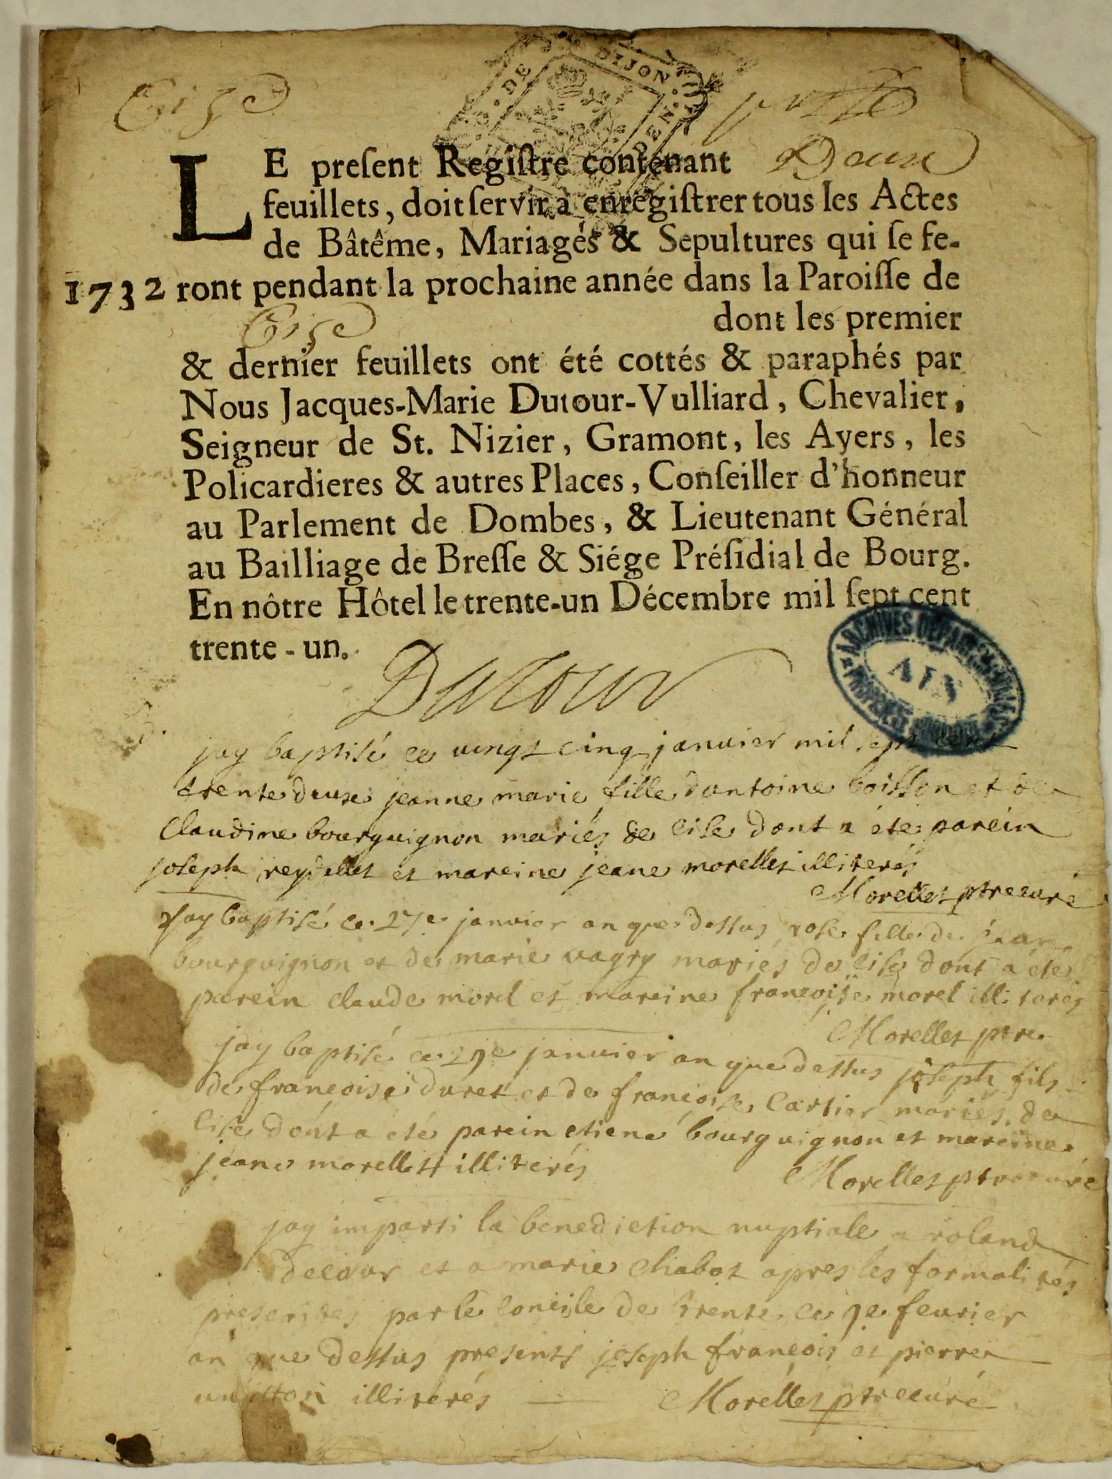 DE DIJON
Cise
LE preſent Regiſtre contenant Deux
feuillets, doit ſervir à enregiſtrer tous les Actes
de Bâtême, Mariages & Sepultures qui ſe fe-
1732 ront pendant la prochaine année dans la Paroiſſe de
Cise dont les premier
& dernier feuillets ont été cottés & paraphés par
Nous Jacques-Marie Dutour-Vulliard, Chevalier,
Seigneur de St. Nizier, Gramont, les Ayers, les
Policardieres & autres Places, Conſeiller d'honneur
au Parlement de Dombes, & Lieutenant Général
au Bailliage de Breſſe & Siége Préſidial de Bourg.
En nôtre Hôtel le trente-un Décembre mil ſept cent
trente-un.
Dutour
ARCHIVES DEPARTEMENTALES
AIN
jay baptisé ce vingt cinq janvier mil sept
trente deux jeanne marie fille dantoine boisson et de
Claudine bourguignon mariés de cise dont a éte parein
joseph reydellet et mareine jeane morellet illiterés
Morellet ptre curé
Jay baptisé ce 27e janvier an que dessus rose fille de
bourguignon et de marie vagry mariés de cise dont a éte
parein claude morel et mareine françoise morel illiterés
Morellet ptre
jay baptisé ce 29e janvier an que dessus joseph fils
de françois duret et de françoise Cartier mariés de
cise dont a éte parein etiene bourguignon et mareine
jeane morellet illiterés Morellet ptre curé
jay imparti la benediction nuptiale a roland
decour et a marie chabot apres les formalités
prescrites par le concile de trente ce 9e feurier
an que dessus presents joseph françois et pierre
illiterés Morellet ptre curé